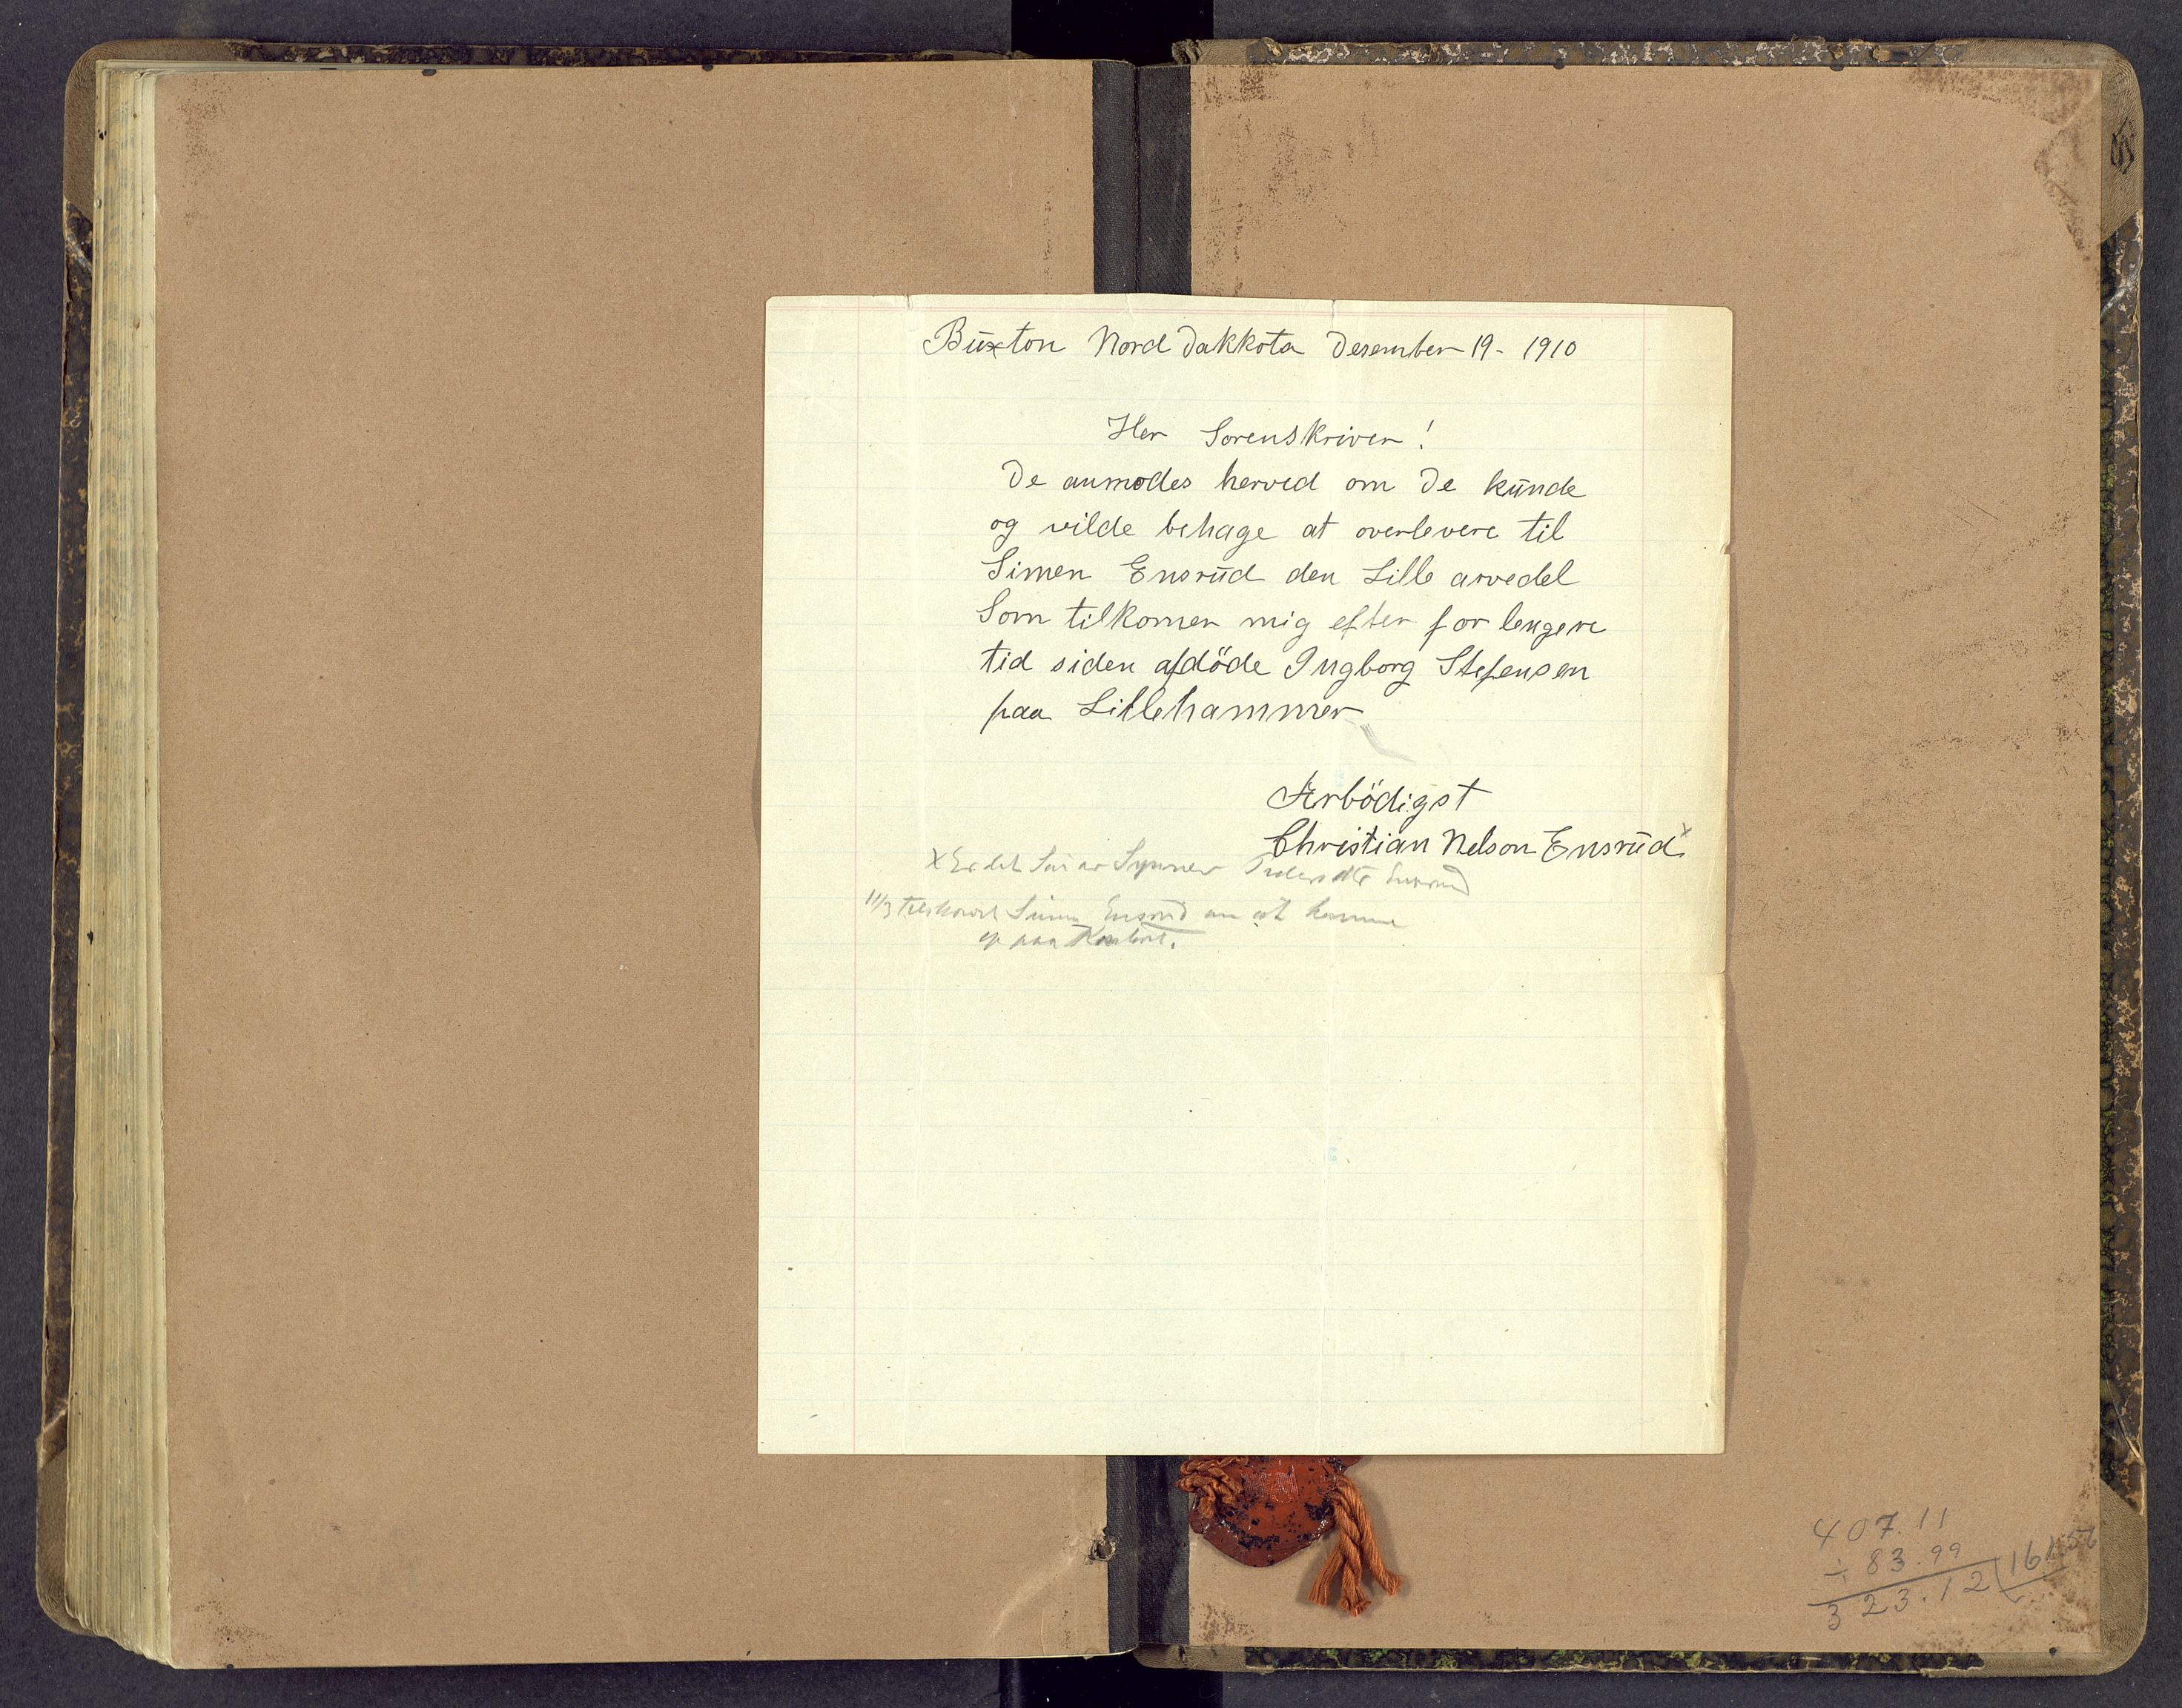 Büxton Nord Dakkota Desember 19 - 1910
Her Sorenskriver!
De anmodes herved om De künde
og vilde behage at overlevere til
Simen Ensrüd den Lille arvedel
Som tilkomer mig efter for lengere
tid siden afdöde Ingborg Stefensen
paa Lillehammer
Ærbödigst
Christian Nelson Ensrüd x
x Er det Søn av Ensrud
11/3 Simen Ensrud om at komme
op paa Kontoret.
407.11
÷ 83.99
323.12